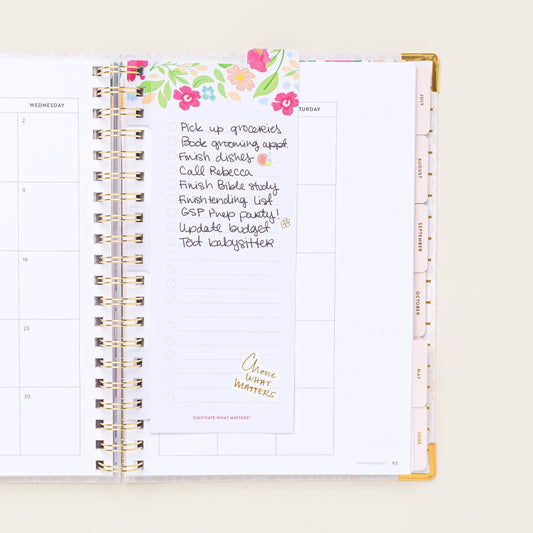 WEDNESDAY
2
9
16
23
30
Pick up groceries
Book grooming appt.
Finish dishes
Call Rebecca
Finish Bible study
Finish tending list
GSP Prep party!
Update budget
Text babysitter
Choose
WHAT
MATTERS
CULTIVATE WHAT MATTERS®
TURDAY
93
JULY
AUGUST
SEPTEMBER
OCTOBER
MAY
JUNE